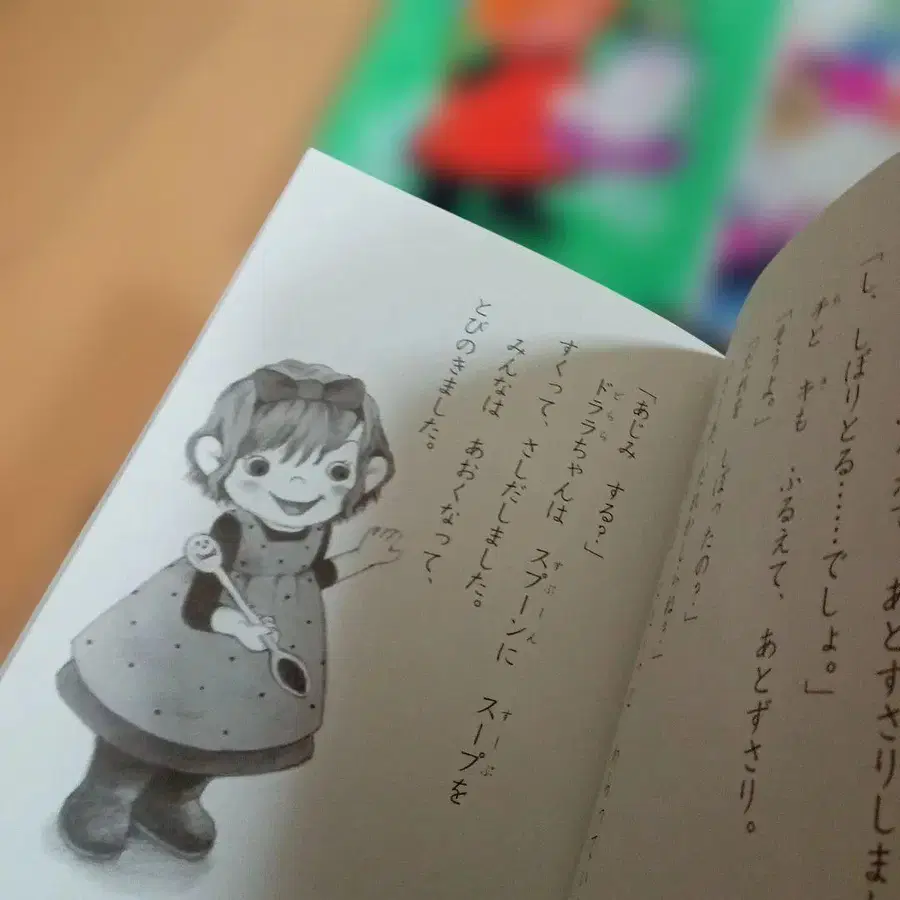 あとずさりしま
「し、しばりとる……でしょ。」
ふるえて、 あとずさり。
「そうよ。」
「あじみ する?」
どらら
ドララちゃんは スプーンに スープを
すぷーん すーぷ
すくって、さしだしました。
みんなは あおくなって、
とびのきました。